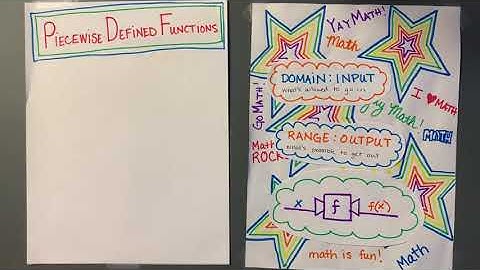 PIECEWISE DEFINED FUNCTIONS
YAY MATH!
Math
DOMAIN: INPUT
what's allowed to go in
I ♥ MATH
GO MATH!
Yay Math!
MATH
RANGE: OUTPUT
what's possible to get out
Math
ROCKS
x
f
f(x)
math is fun!
Math